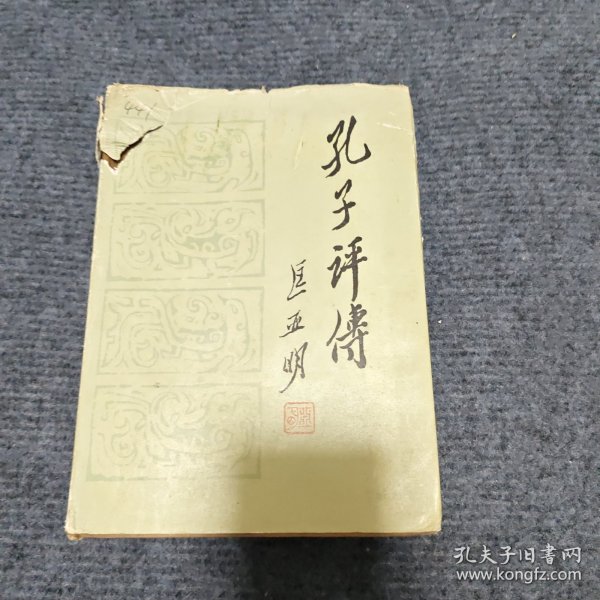 441
孔子评傳
匡亚明
孔夫子旧書网
www.kongfz.com